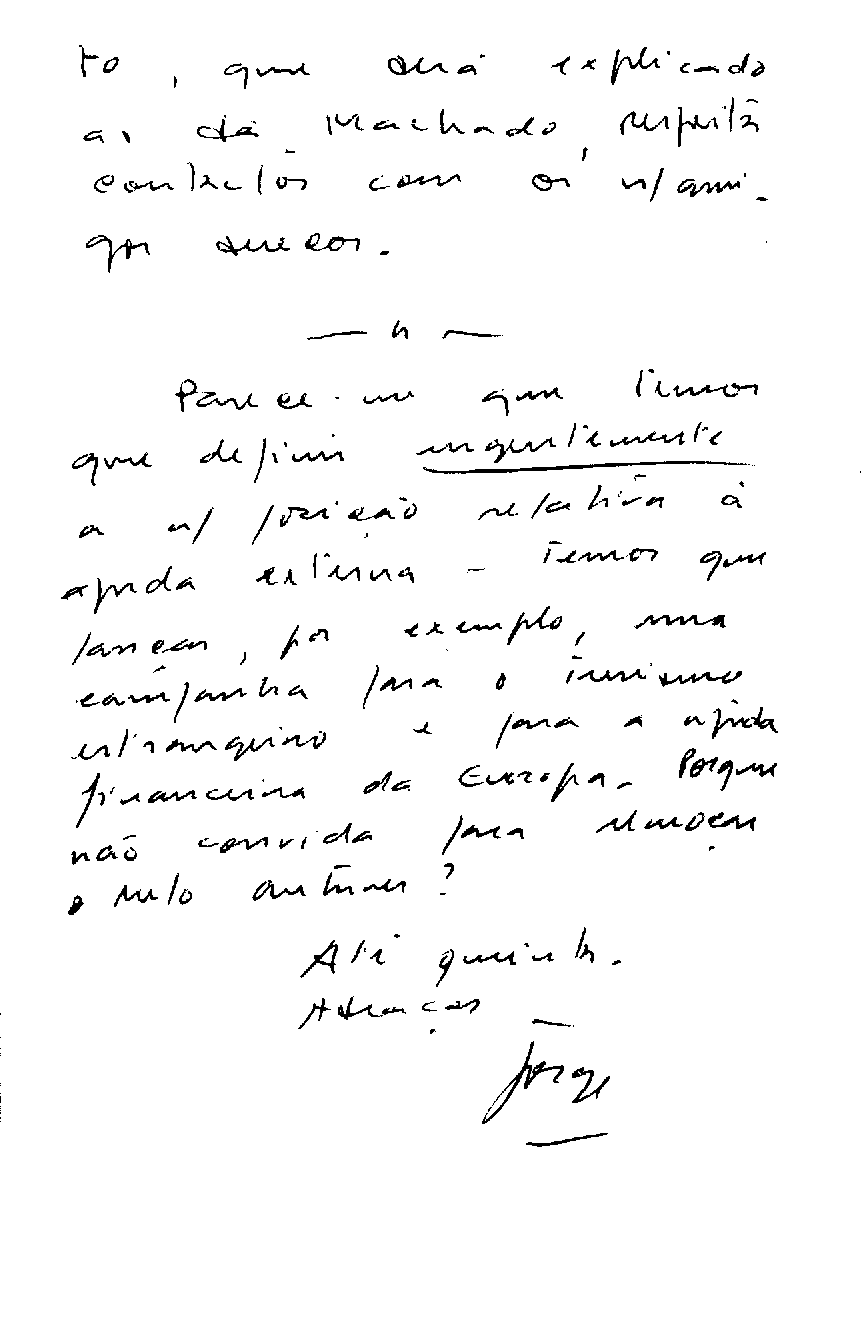 to, que será explicado
ao Sá Machado, respeita
contactos com os n/ ami-
gos suecos.
— " —
Parece-me que temos
que definir urgentemente
a n/ posição relativa à
ajuda externa - temos que
lançar, por exemplo, uma
campanha para o turismo
estrangeiro e para a ajuda
financeira da Europa. Porque
não convida para almoçar
o Melo Antunes?
Até quinta.
Abraços
Jorge